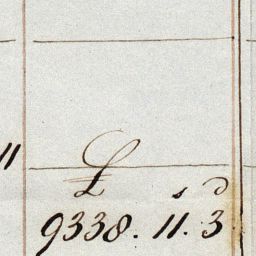 11
£ s d
9338. 11. 3